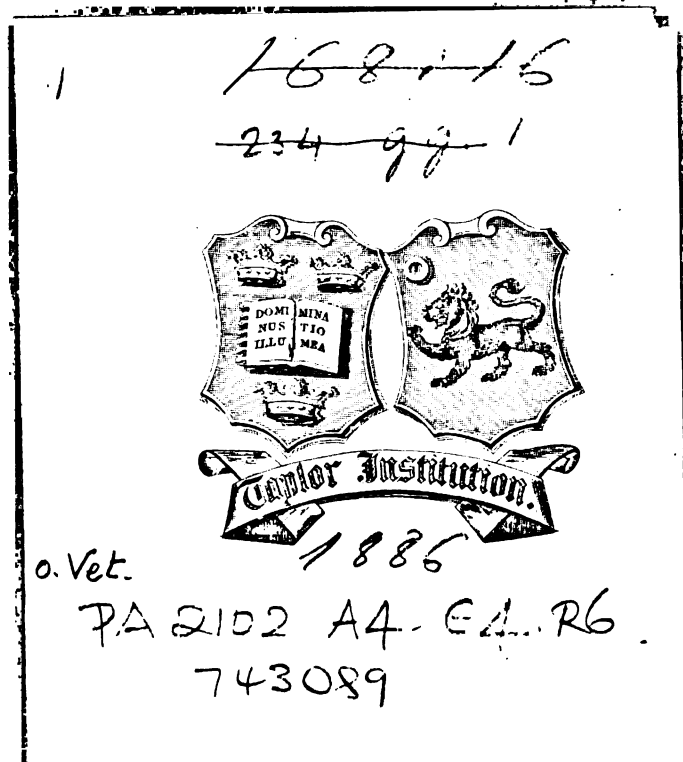 1
168.i.16
234 gg. 1
DOMI MINA
NUS TIO
ILLU MEA
Taylor Institution.
1886
o. Vet.
PA 2102 A4. E4. R6.
743089